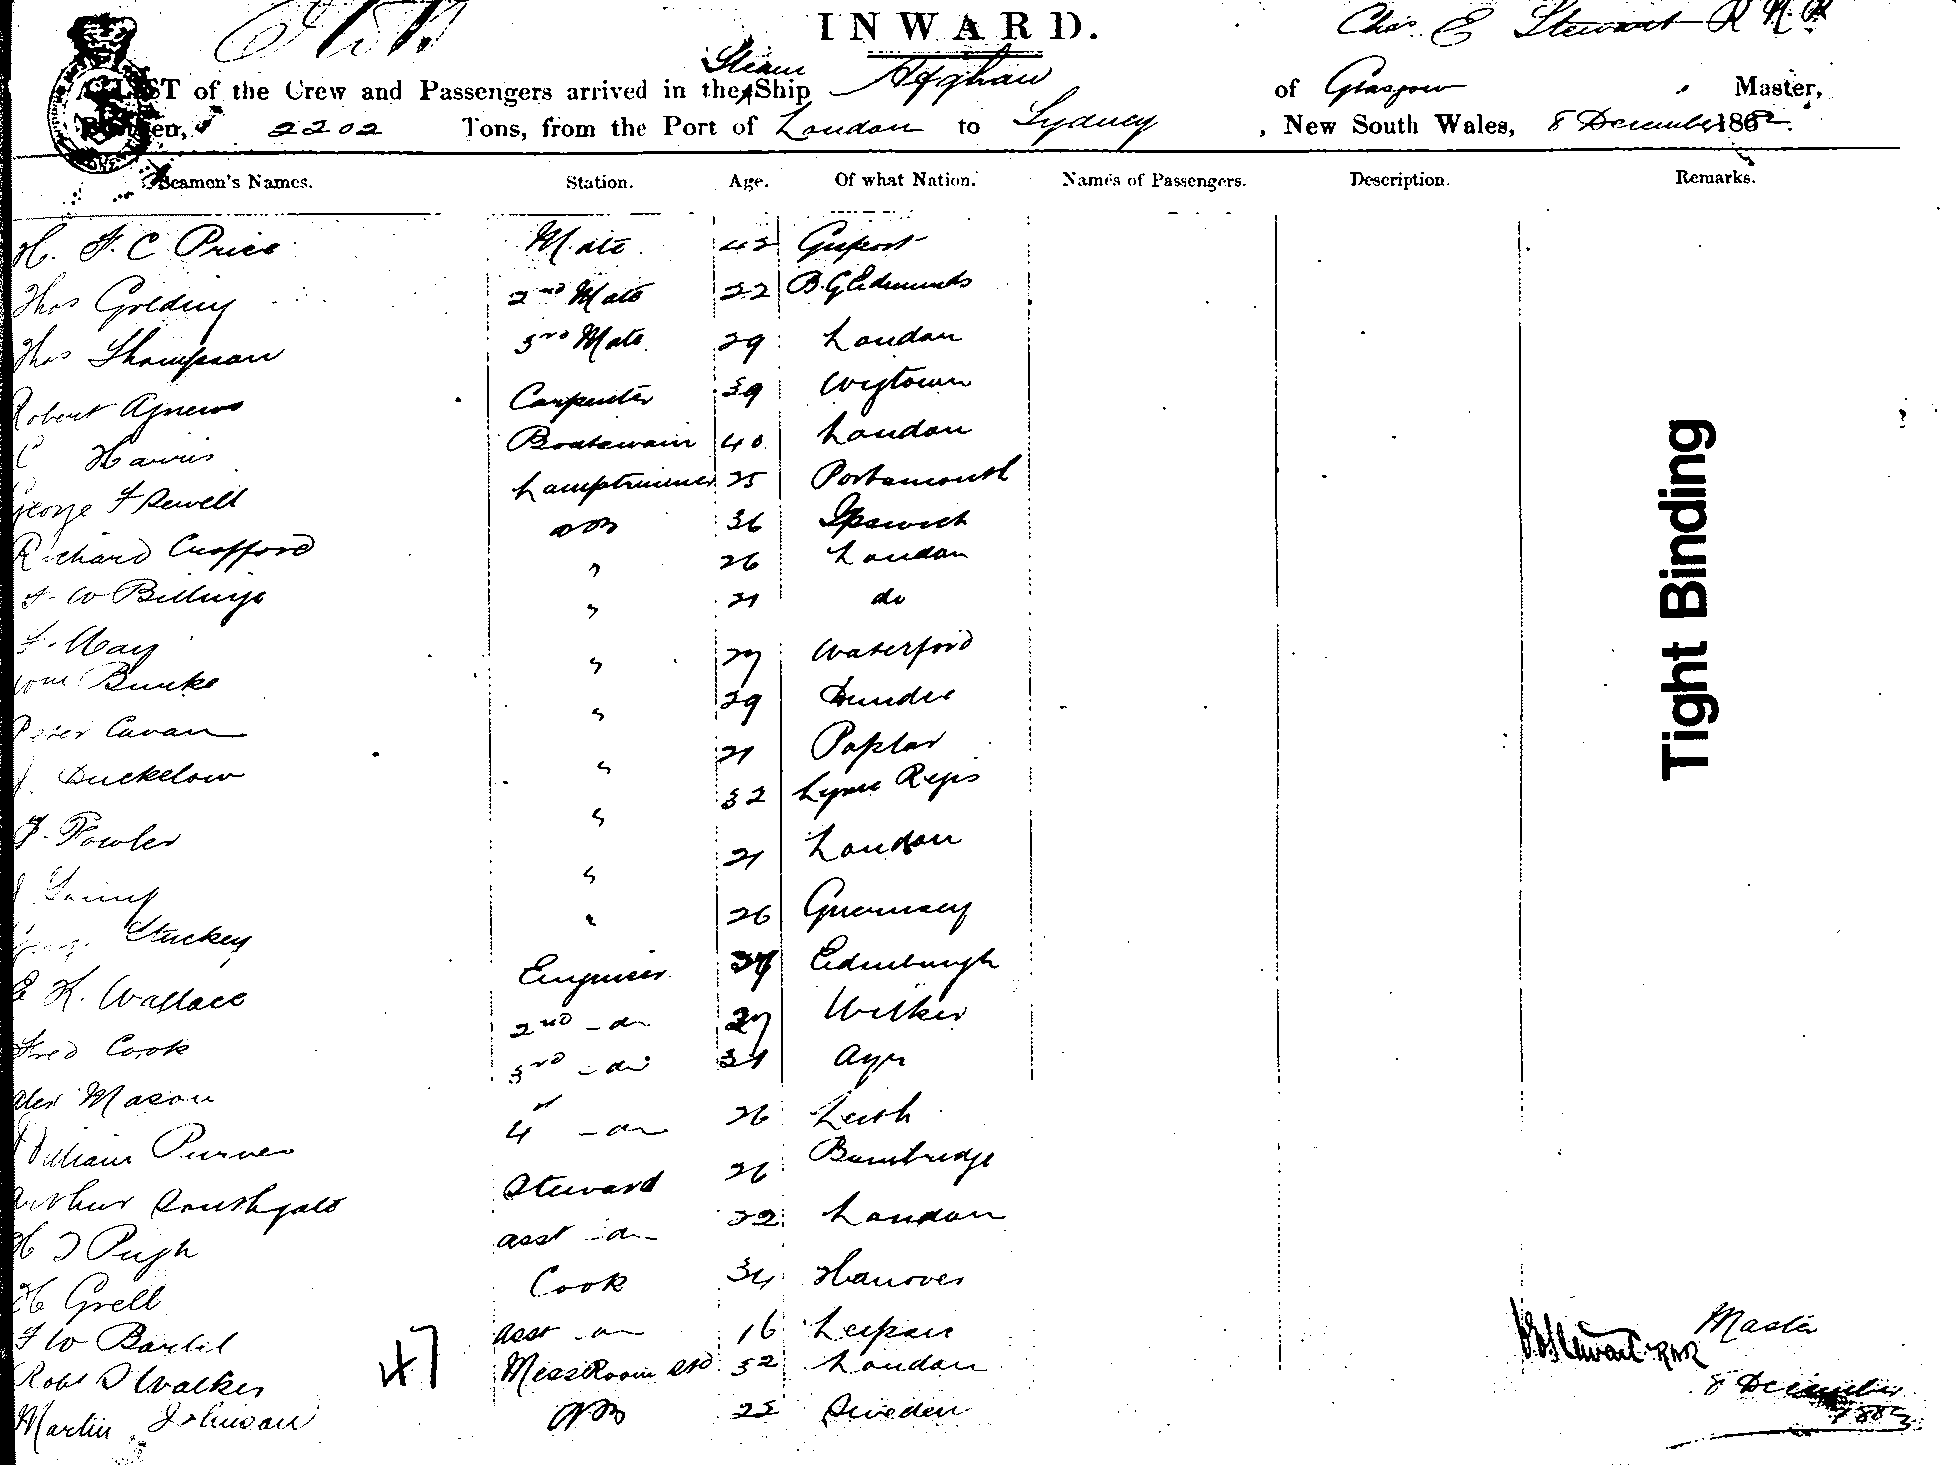 INWARD.
Chas. E Stewart R N R
Steam
A LIST of the Crew and Passengers arrived in the Ship Afghan of Glasgow Master,
Burthen, 2202 Tons, from the Port of London to Sydney , New South Wales, 8 December 1882.
Seamen's Names. Station. Age. Of what Nation. Names of Passengers. Description. Remarks.
H. F. C Price Mate 42 Gosport
Thos Golding 2nd Mate 22 B. G Edmunds
Thos Thompson 3rd Mate 29 London
Robert Agnew Carpenter 39 Wigtown
C Harris Boatswain 40 London
George F Sewell Lamptrimmer 25 Portsmouth
Richard Crafford AB 36 Ipswich
F. W Billings " 26 London
F. May " 21 do
Wm Burke " 27 Waterford
Peter Cavan " 29 Dundee
J. Duckelow " 21 Poplar
F. Fowler " 32 Lyme Regis
J " 21 London
George Stuckey " 26 Guernsey
E H. Wallace Engineer Edinburgh
Fred Cook 2nd - do 27 Walker
Alex Mason 3rd - do 31 Ayr
William Purves 4 - do 26 Leith
Arthur Southgate Steward 26 Bainbridge
H J Pugh asst - do - 22 London
H Grell Cook 34 Hanover
F W Bartel asst - do 16
Robt D Walker Mess Room Std 32 London
Martin Johnson AB 25 Sweden
47
Tight Binding
C E Stewart RNR Master
8 December
1882